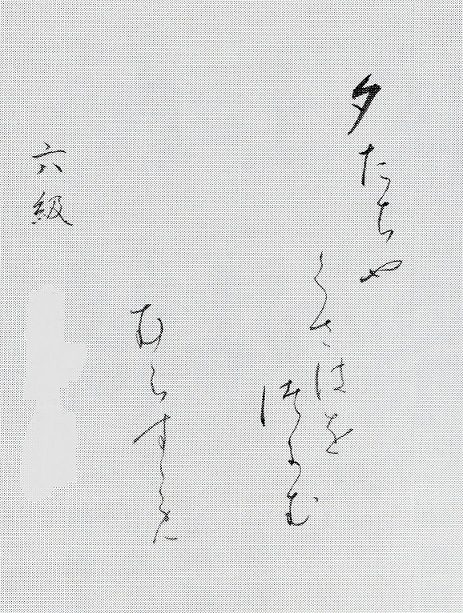 夕たちや
くさはを
つかむ
むらすゝめ
六級